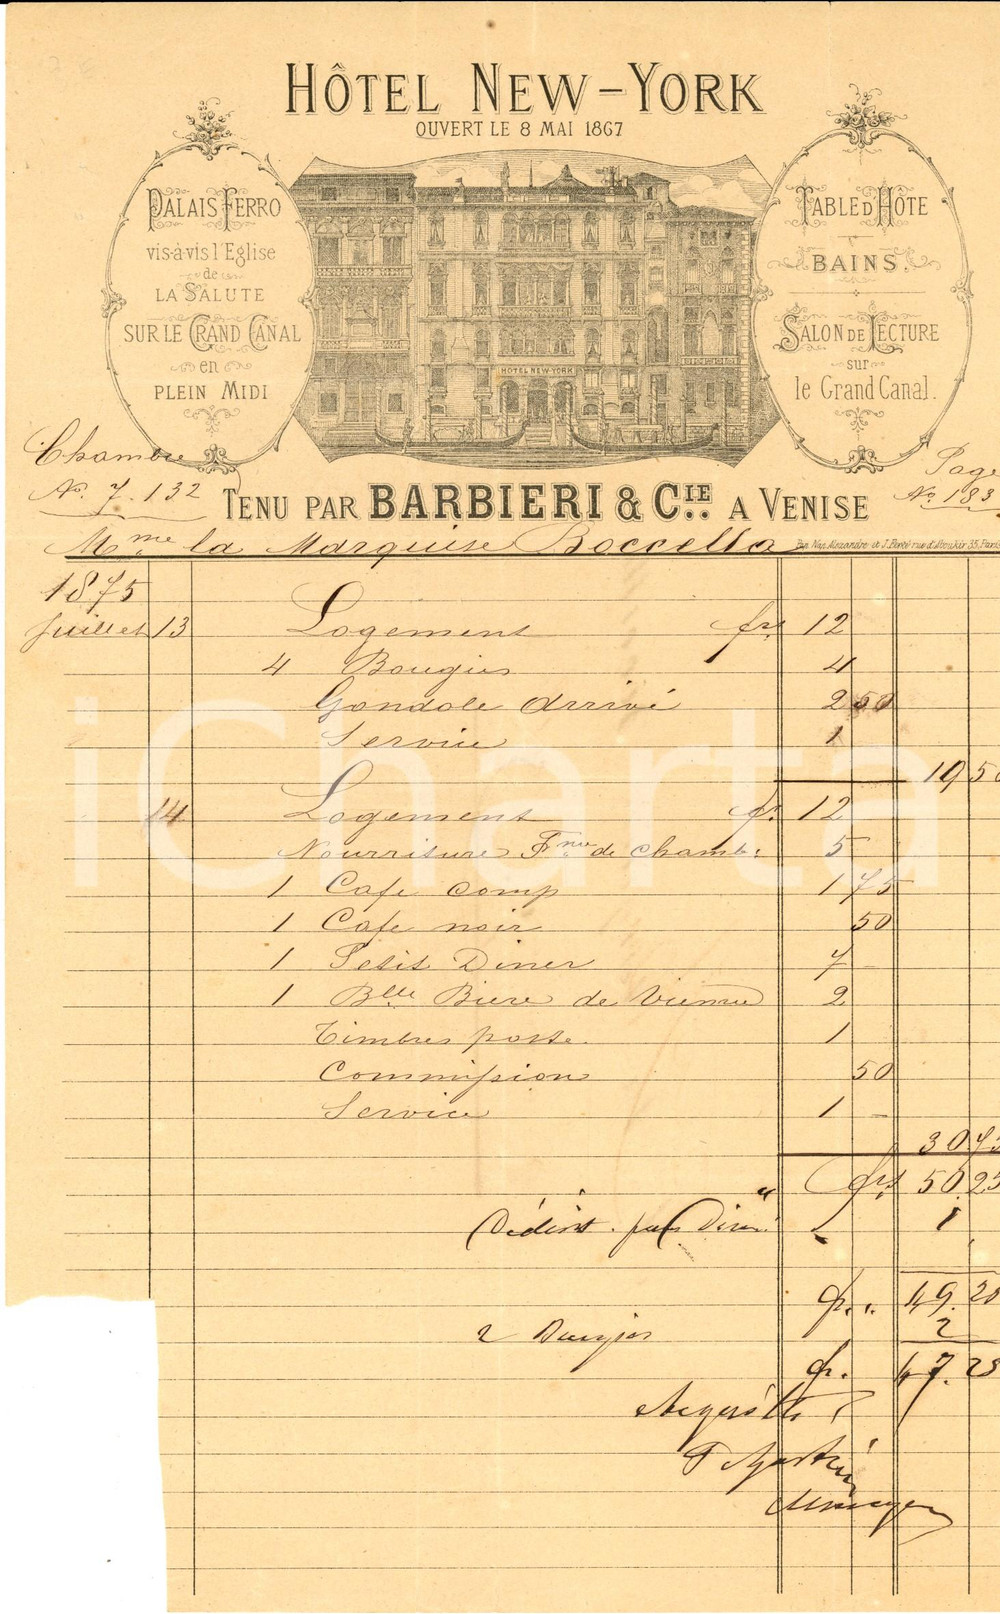 HÔTEL NEW-YORK
OUVERT LE 8 MAI 1867
PALAIS FERRO
vis-à-vis l'Eglise
de
LA SALUTE
SUR LE GRAND CANAL
en
PLEIN MIDI
HOTEL NEW-YORK
TABLE D'HÔTE
BAINS.
SALON DE LECTURE
sur
le Grand Canal.
Chambre
No. 7. 132
Page
No. 183
TENU PAR BARBIERI & CIE. A VENISE
Mme la Marquise Boccella
Pap. Nap. Alexandre et J. Perré rue d'Aboukir 35, Paris
1875
Juillet 13 Logement frs 12
4 Bougies 4
Gondole arrivé 2 50
Service 1
19 50
14 Logement fr. 12
Nourriture Fme de chambe. 5
1 Cafe comp 1 75
1 Cafe noir 50
1 Petit Diner 7 –
1 Blle Biere de Vienne 2
Timbres poste. 1
Commission 50
Service 1 –
30 75
frs 50.25
1
fr. 49.25
2 Bougies 2
fr. 47.25